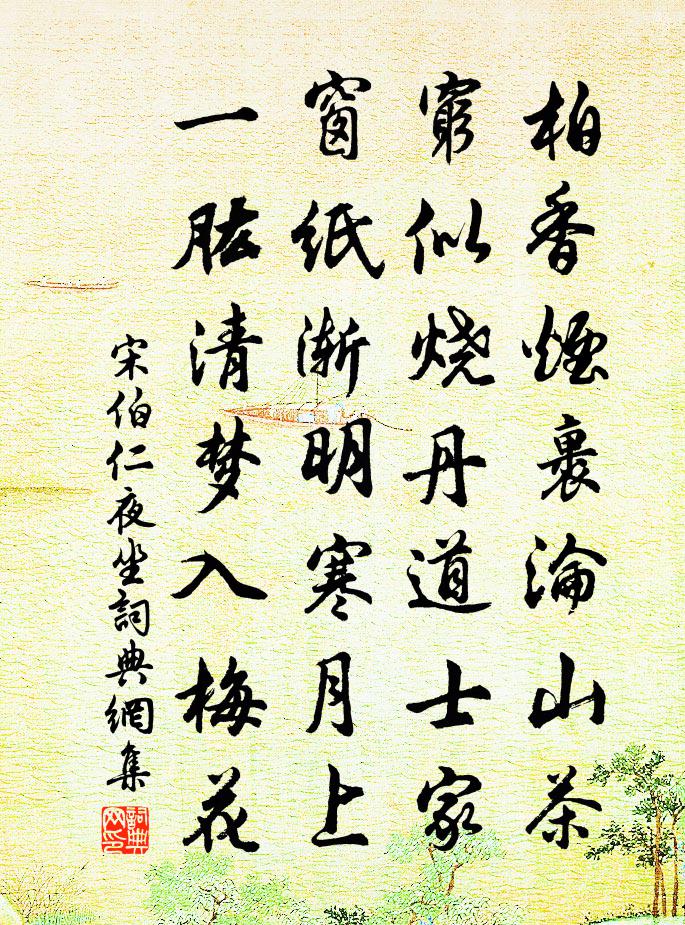 柏香煙裏淪山茶
窮似烧丹道士家
窗紙漸明寒月上
一肱清梦入梅花
宋伯仁夜坐詞典網集
詞典网印